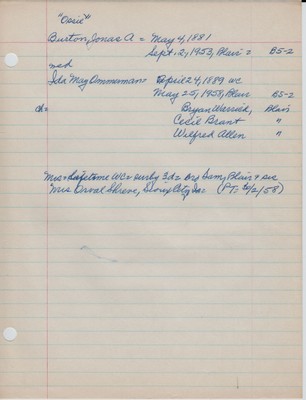 "Ossie"
Burton, Jonas A = May 4, 1881
Sept. 2, 1953, Blair = B5-2
md
Ida May Ommerman = April 24, 1889 WC
May 25, 1958, Blair B5-2
ch = Bryan Warrick, Blair
Cecil Brant "
Wilfred Allen "
"Mrs = Lifetime WC = surv by 3d = bro Sam, Blair + sis
"Mrs Orval Shreve, Sioux City Ia= (PT: 6/2/58)